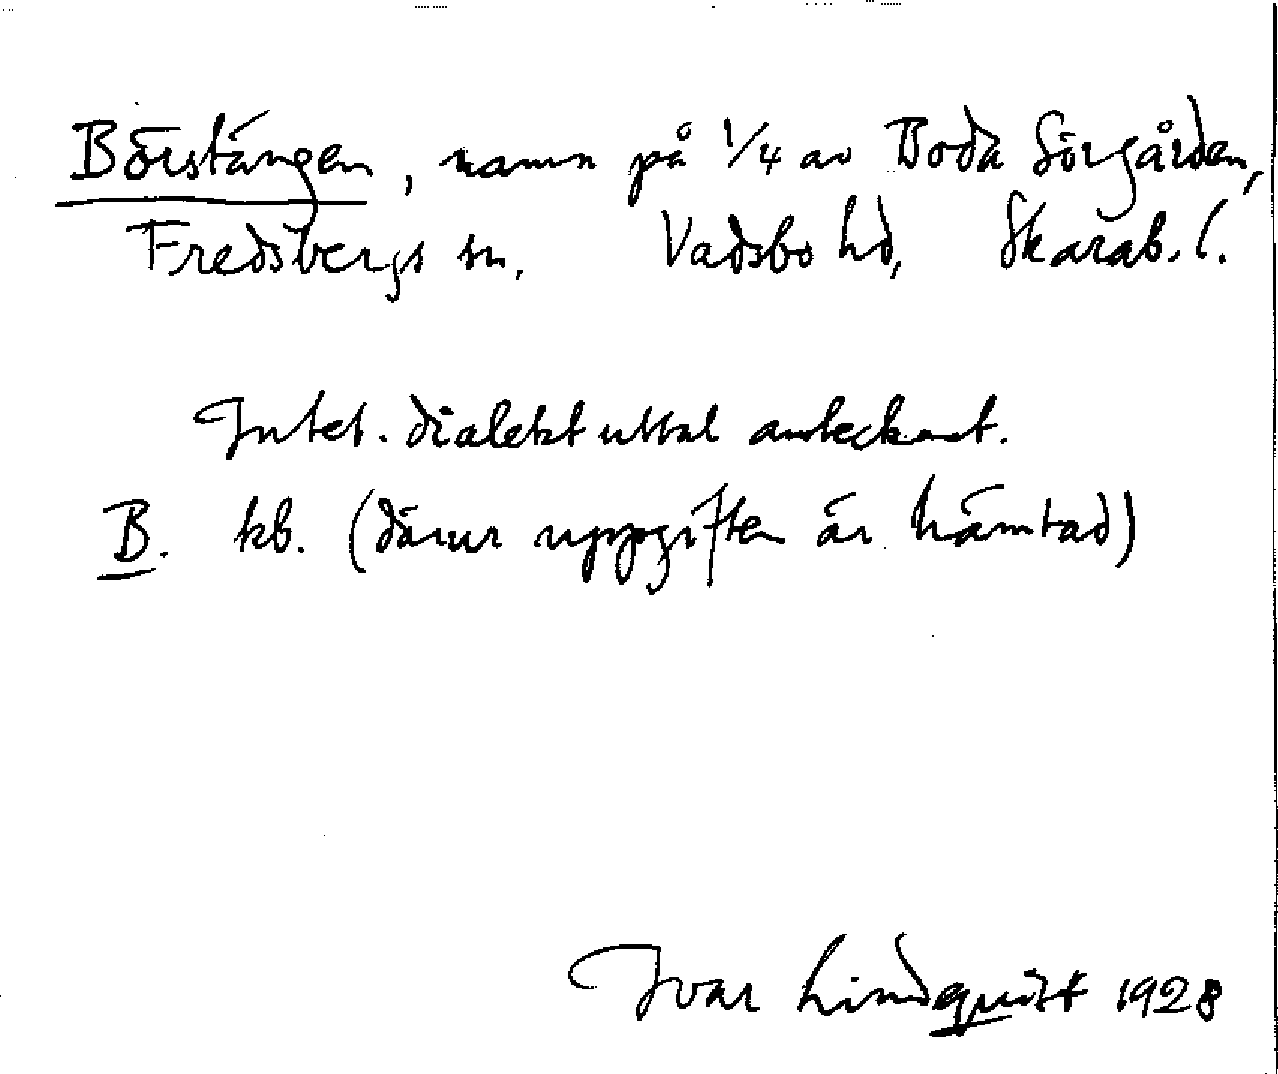 Börstängen, namn på 1/4 av Boda Sörgården,
Fredsbergs sn. Vadsbo hd, Skarab. l.
Intet. dialektuttal antecknat.
B. kb. (därur uppgiften är hämtad)
Ivar Lindquist 1928